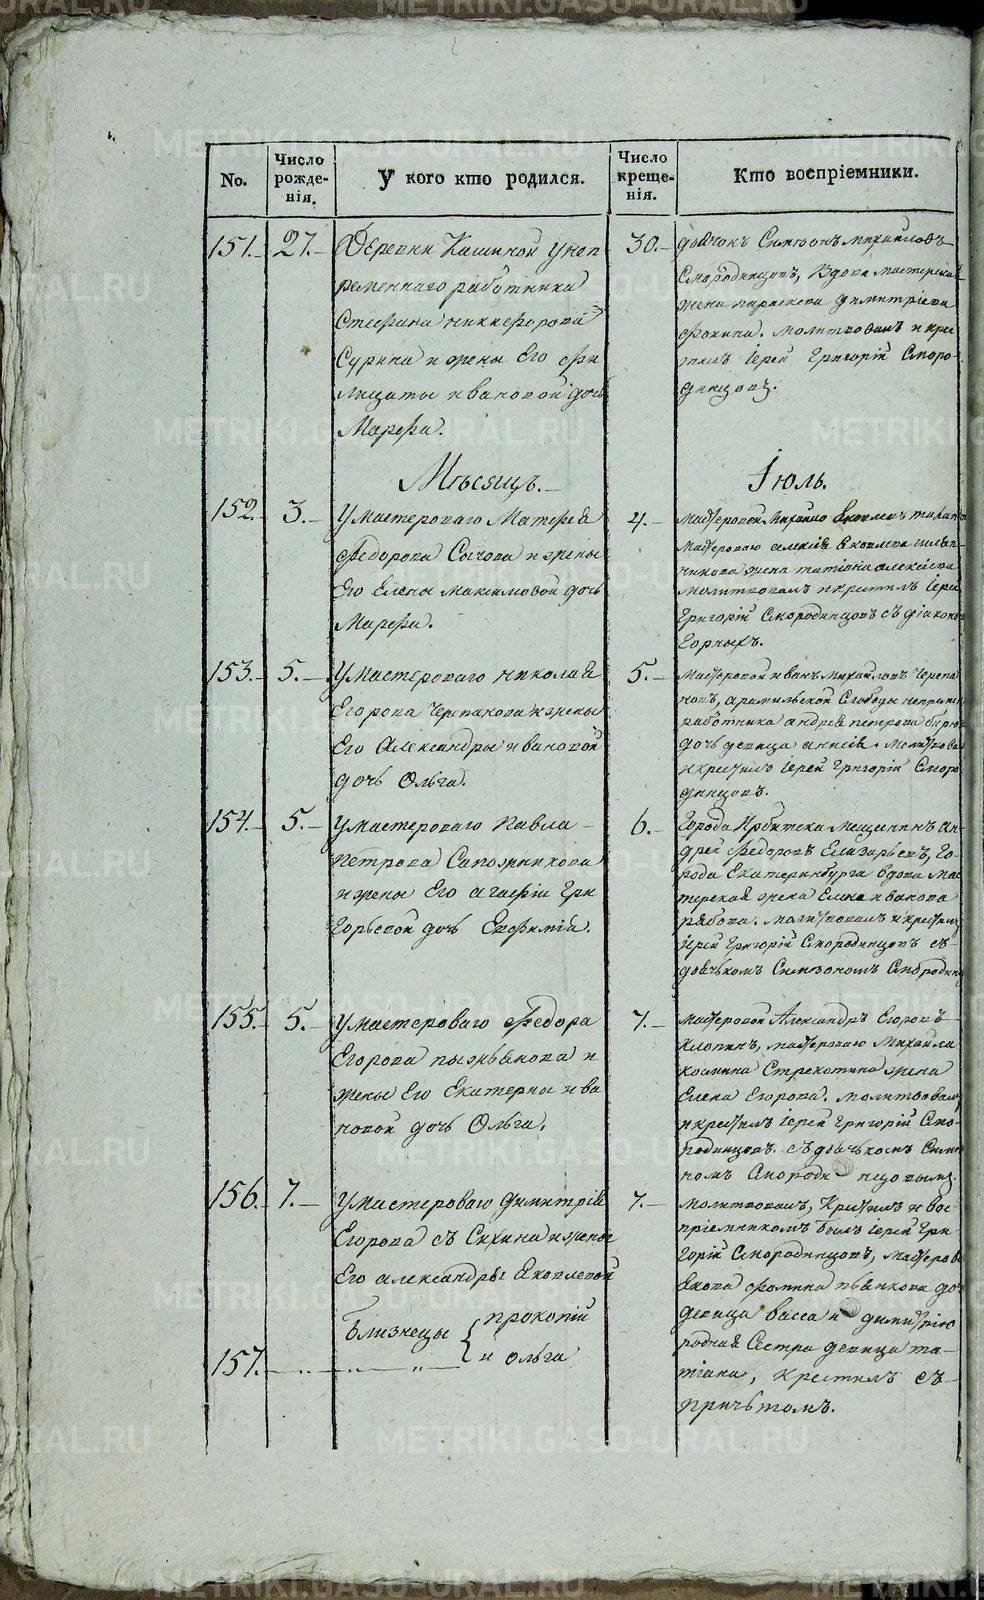 No.
Число рожде-нія.
У кого кто родился.
Число креще-нія.
Кто воспріемники.
151.
27.
Деревни Кашиной у неп
ременнаго работника
Стефана Никифорова
Сурина и жены Его Фи
лицаты Ивановой дочь
Марфа.
30.
дьячокъ Симеонъ Михайловъ
Смородинцовъ, вдова мастерская
жена Параскева Димитріева
Фокина. Молитвовалъ и кре
стилъ Іерей Григорій Сморо-
динцовъ.
Мѣсяцъ.
Іюль.
152.
3.
У мастероваго Матфея
Федорова Сычова и жены
Его Елены Максимовой дочь
Марфа.
4.
Мастеровой Михайло Яковлевъ
Мастероваго Алексія Яковлева
жена Татіана Алексіева
Молитвовалъ и крестилъ Іерей
Григорій Смородинцовъ съ діакономъ
Горныхъ.
153.
5.
У мастероваго Николая
Егорова Черепанова и жены
Его Александры Ивановой
дочь Ольга.
5.
Мастеровой Иванъ Михайловъ Черепа
новъ, Арамильской Слободы
работника Андрея Петрова
дочь девица Анисія. Молитвова
и крестилъ Іерей Григорій Сморо
динцовъ.
154.
5.
У мастероваго Павла
Петрова Сапожникова
и жены Его Агафіи Гри
горьевой дочь Евфимія.
6.
Города Ирбитска Мещанинъ Ан
дрей Федоровъ Елизарьевъ, Го-
рода Екатеринбурга вдова Мас
терская жена Елена Иванова
Рябова. Молитвовалъ и крестилъ
Іерей Григорій Смородинцовъ съ
дьячькомъ Симеономъ Смородинц
155.
5.
У мастероваго Федора
Егорова Пызьянова и
жены Его Екатерины Ива
новой дочь Ольга.
7.
Мастеровой Александръ Егоровъ
Клопинъ, мастероваго Михайла
Космина Стрекотина жена
Елена Егорова. Молитвовалъ
и крестилъ Іерей Григорій Смо-
родинцовъ. съ дьячькомъ Симео
номъ Смородинцовымъ.
156.
7.
У мастероваго Димитрія
Егорова и жены
Его Александры Яковлевой
Близнецы { Прокопій
и Ольга
157.
7.
Молитвовалъ, Крестилъ и вос-
пріемникомъ былъ Іерей Гри-
горій Смородинцовъ, Мастеров
Якова Фомина Пьянкова до
девица Васса и Димитрію
родная Сестра девица Та-
тіана, крестилъ съ
причьтомъ.
METRIKI.GASO-URAL.RU